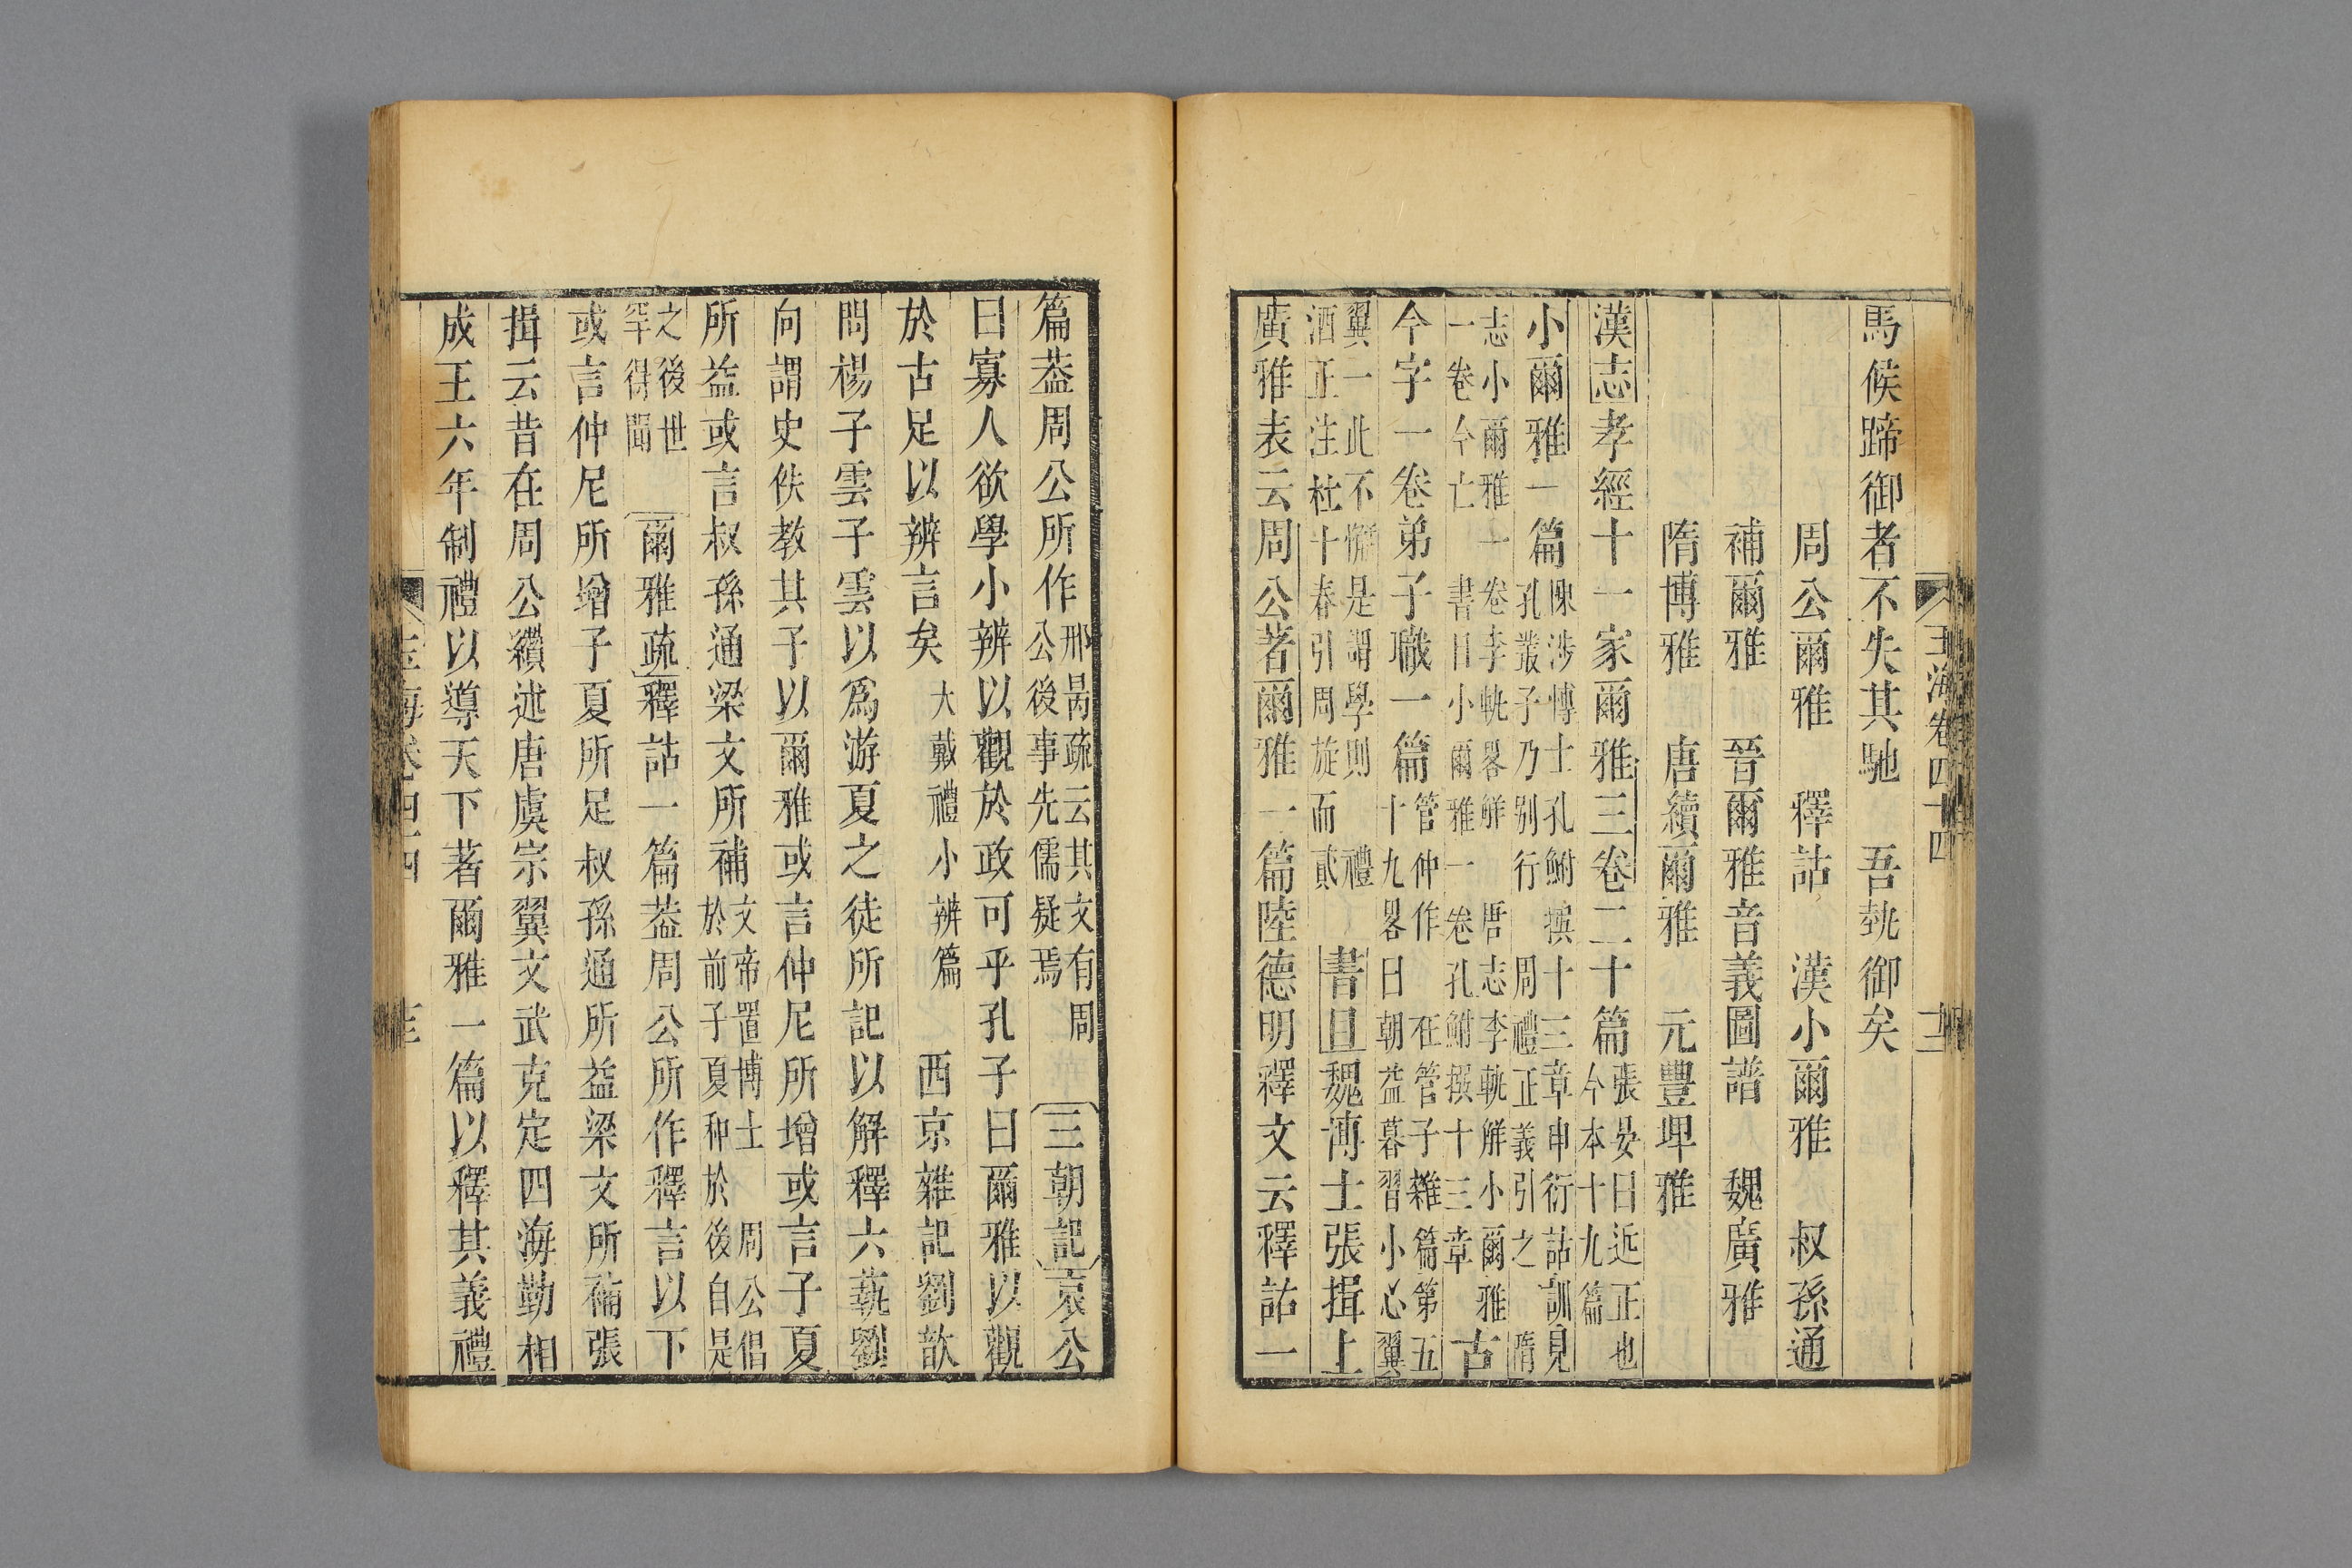 玉海卷四十四
十二
馬倏蹄御者不失其馳　吾執御矣
周公爾雅　釋詁　漢小爾雅　叔孫通
補爾雅　晉爾雅音義圖譜　魏廣雅
隋博雅　唐續爾雅　元豐埤雅
漢志孝經十一家爾雅三卷二十篇張晏曰近正也
今本十九篇
小爾雅一篇陳涉博士孔鮒撰十三章申衍詁訓見
孔叢子乃別行　周禮正義引之　隋
志小爾雅一卷李軌畧解　唐志李軌解小爾雅
一卷今亡　書目小爾雅一卷孔鮒撰十三章
古
今字一卷弟子職一篇管仲作　在管子雜篇第五
十九畧曰朝益暮習小心翼
翼一此不懈是謂學則　禮
酒正注杜子春引周旋而貳
書目魏博士張揖上
廣雅表云周公著爾雅一篇陸德明釋文云釋詁一
篇葢周公所作邢昺疏云其文有周
公後事先儒疑焉
三朝記哀公
曰寡人欲學小辨以觀於政可乎孔子曰爾雅以觀
於古足以辨言矣大戴禮小辨篇　西京雜記劉歆
問楊子雲子雲以爲游夏之徒所記以解釋六蓺劉
向謂史佚教其子以爾雅或言仲尼所增或言子夏
所益或言叔孫通梁文所補文帝置博士　周公倡
於前子夏和於後自是
之後後世
罕得聞
爾雅疏釋詁一篇葢周公所作釋言以下
或言仲尼所增子夏所足叔孫通所益梁文所補張
揖云昔在周公纘述唐虞宗翼文武克定四海勤相
成王六年制禮以導天下著爾雅一篇以釋其義禮
玉海卷四十四